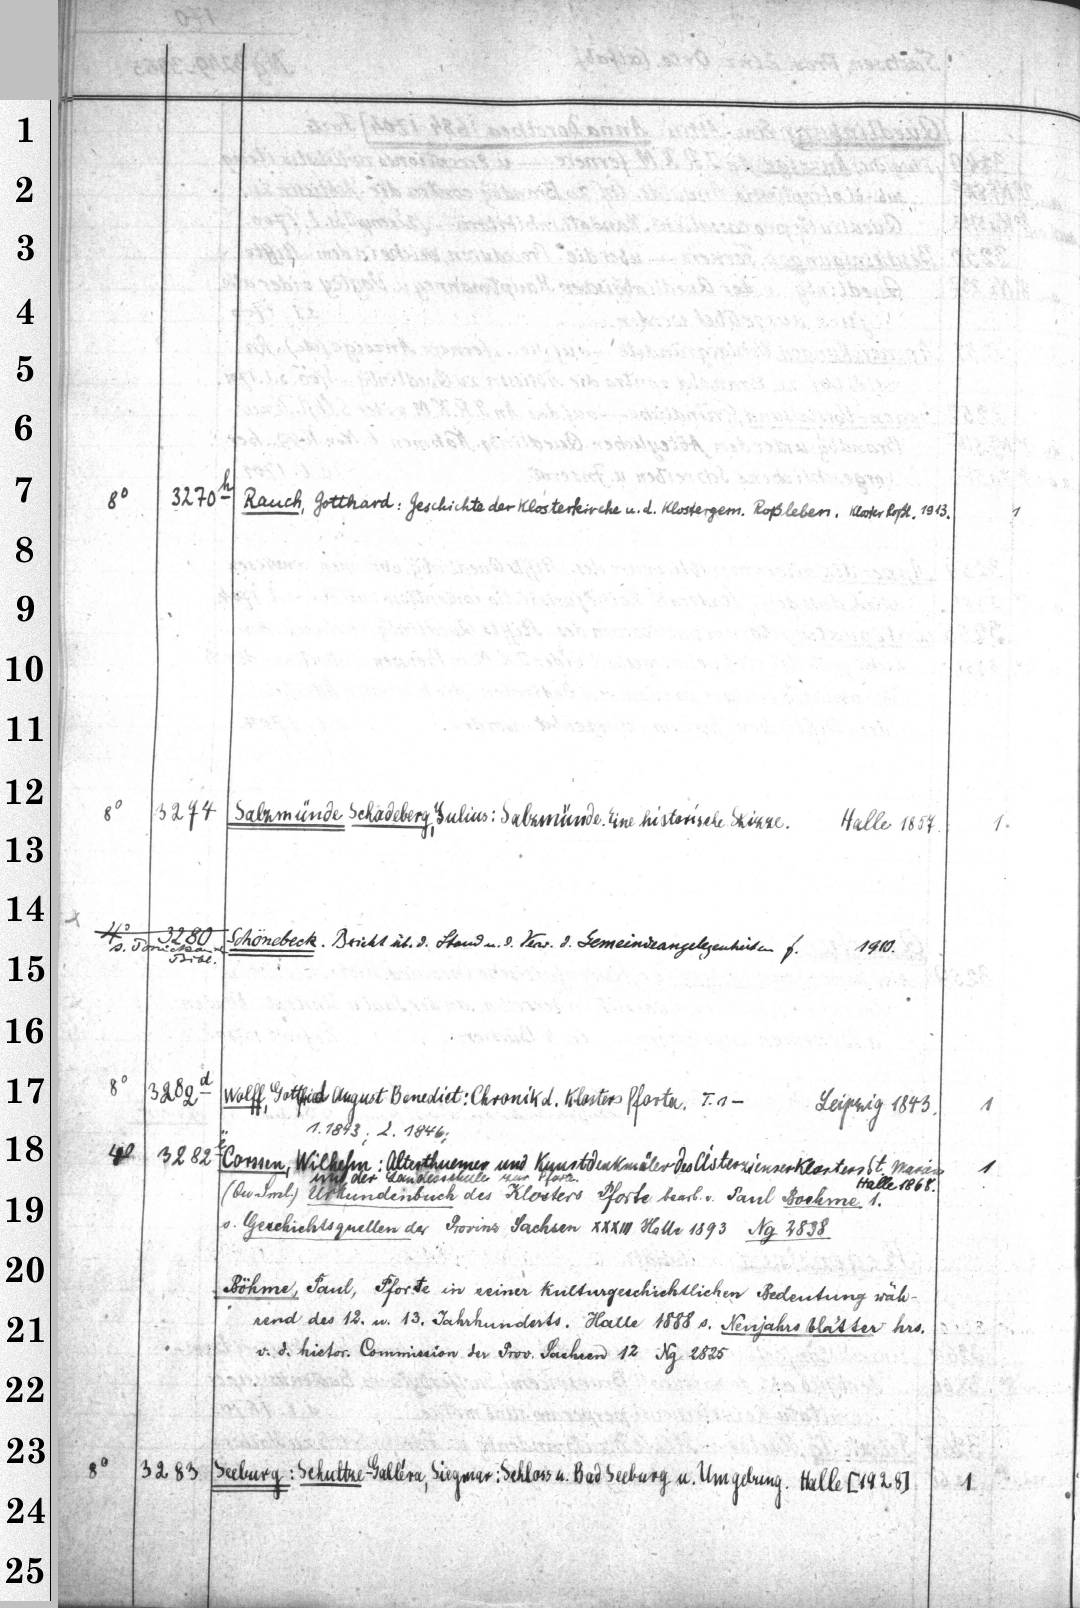 1
2
3
4
5
6
7
8
9
10
11
12
13
14
15
16
17
18
19
20
21
22
23
24
25
8° 3270 h Rauch, Gotthard: Geschichte der Klosterkirche u. d. Klostergem. Roßleben. Kloster Roßl. 1913. 1
8° 3274 Salzmünde Schadeberg, Julius: Salzmünde. Eine historische Skizze. Halle 1857. 1.
4° 3280 Schönebeck. Bericht üb. d. Stand u. d. Verw. d. Gemeindeangelegenheiten f. 1910.
Bibl.
8° 3282 d Wolff, Gottfried August Benedict: Chronik d. Klosters Pforta. T. 1 – Leipzig 1843. 1
1. 1843; 2. 1846;
4° 3282 e Corssen, Wilhelm: Alterthuemer und Kunstdenkmäler des Cisterzienserklosters St. Marien 1
und der Landesschule zur Pforte. Halle 1868.
Urkundenbuch des Klosters Pforte bearb. v. Paul Boehme 1.
s. Geschichtsquellen der Provinz Sachsen XXXIII Halle 1893 Ng 2838
Böhme, Paul, Pforte in seiner kulturgeschichtlichen Bedeutung wäh-
rend des 12. u. 13. Jahrhunderts. Halle 1888 s. Neujahrsblätter hrs.
v. d. histor. Commission der Prov. Sachsen 12 Ng 2825
8° 3283 Seeburg: Schultze-Galléra, Siegmar: Schloss u. Bad Seeburg u. Umgebung. Halle [1928] 1